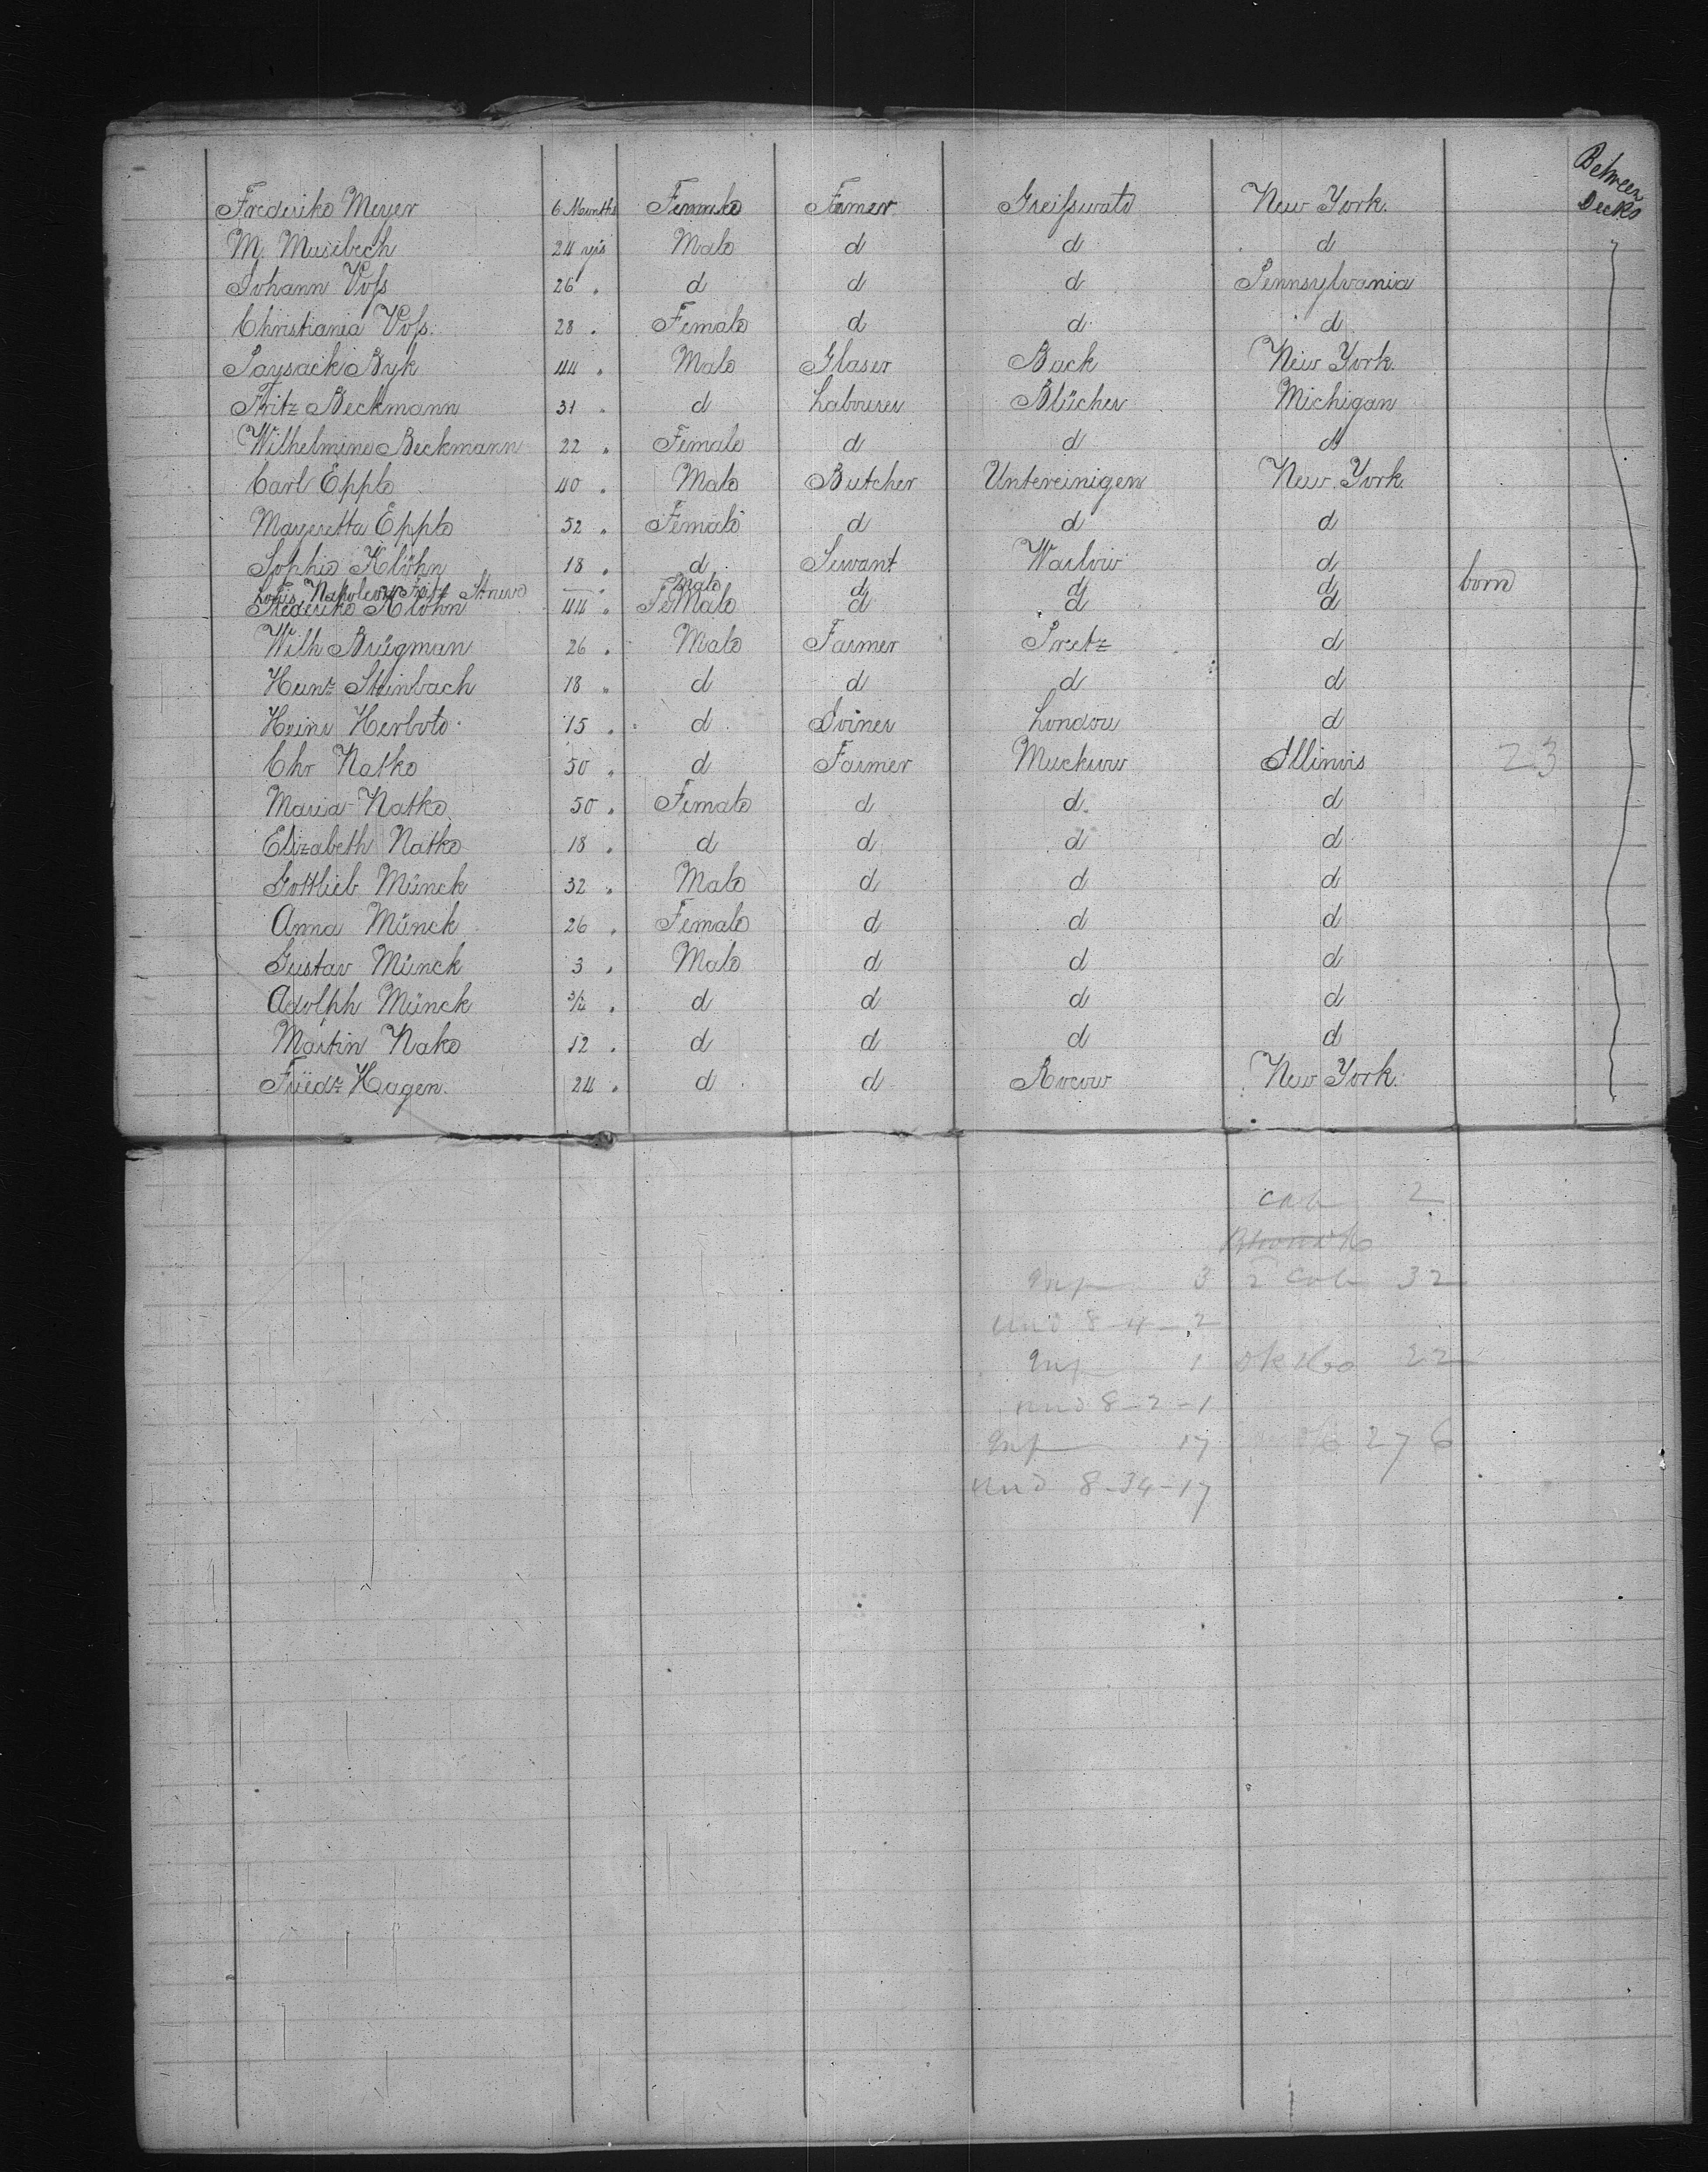 Between
Decks
Frederike Meyer 6 Months Female Farmer Greifswald New York.
M. Musebech 24 yrs Male d d d
Johann Voss 26 " d d d Pennsylvania
Christiania Voss. 28 " Female d d d
Paysack Byk 44 " Male Glaser Back New York.
Fritz Beckmann 31 " d Labourer Blücher Michigan
Wilhelmine Beckmann 22 " Female d d d
Carl Epple 40 " Male Butcher Untereinigen New York.
Margretta Epple 52 " Female d d d
Sophie Klöhn 18 " d Servant Warlow d
Louis Napoleon Fritz — Male d d d born
Frederike Klöhn 44 " Female d d d
Wilh Brügman 26 " Male Farmer Preetz d
Heinr Steinbach 18 " d d d d
Heinr Herbold 15 " d Joiner London d
Chr Natke 50 " d Farmer Muckow Illinois 23
Maria Natke 50 " Female d d d
Elizabeth Natke 18 " d d d d
Gottlieb Münck 32 " Male d d d
Anna Münck 26 " Female d d d
Gustav Münck 3 " Male d d d
Adolph Münck 3/4 " d d d d
Martin Nake 12 " d d d d
Friedr Hagen. 24 " d d Rocow New York.
Cab 2
Inf 3 2 Cab 32
Und 8-4-2
Inf 1 22
Und 8-2-1
Inf 17 276
Und 8-34-17